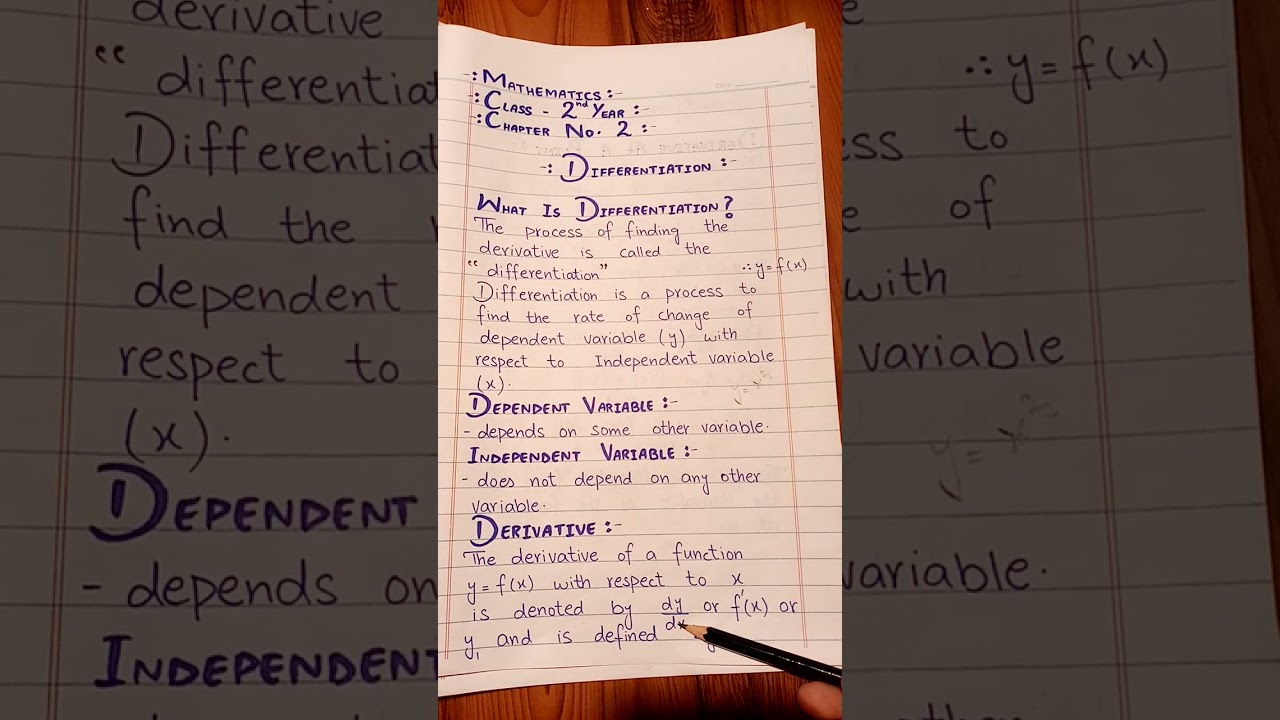 -: MATHEMATICS :-
-: CLASS - 2nd YEAR :-
-: CHAPTER No. 2 :-
-: DIFFERENTIATION :-
WHAT IS DIFFERENTIATION?
The process of finding the
derivative is called the
“differentiation” ∴ y = f(x)
Differentiation is a process to
find the rate of change of
dependent variable (y) with
respect to Independent variable
(x).
y = x²
DEPENDENT VARIABLE :-
- depends on some other variable.
INDEPENDENT VARIABLE :-
- does not depend on any other
variable.
DERIVATIVE :-
The derivative of a function
y = f(x) with respect to x
is denoted by dy/dx or f'(x) or
y₁ and is defined